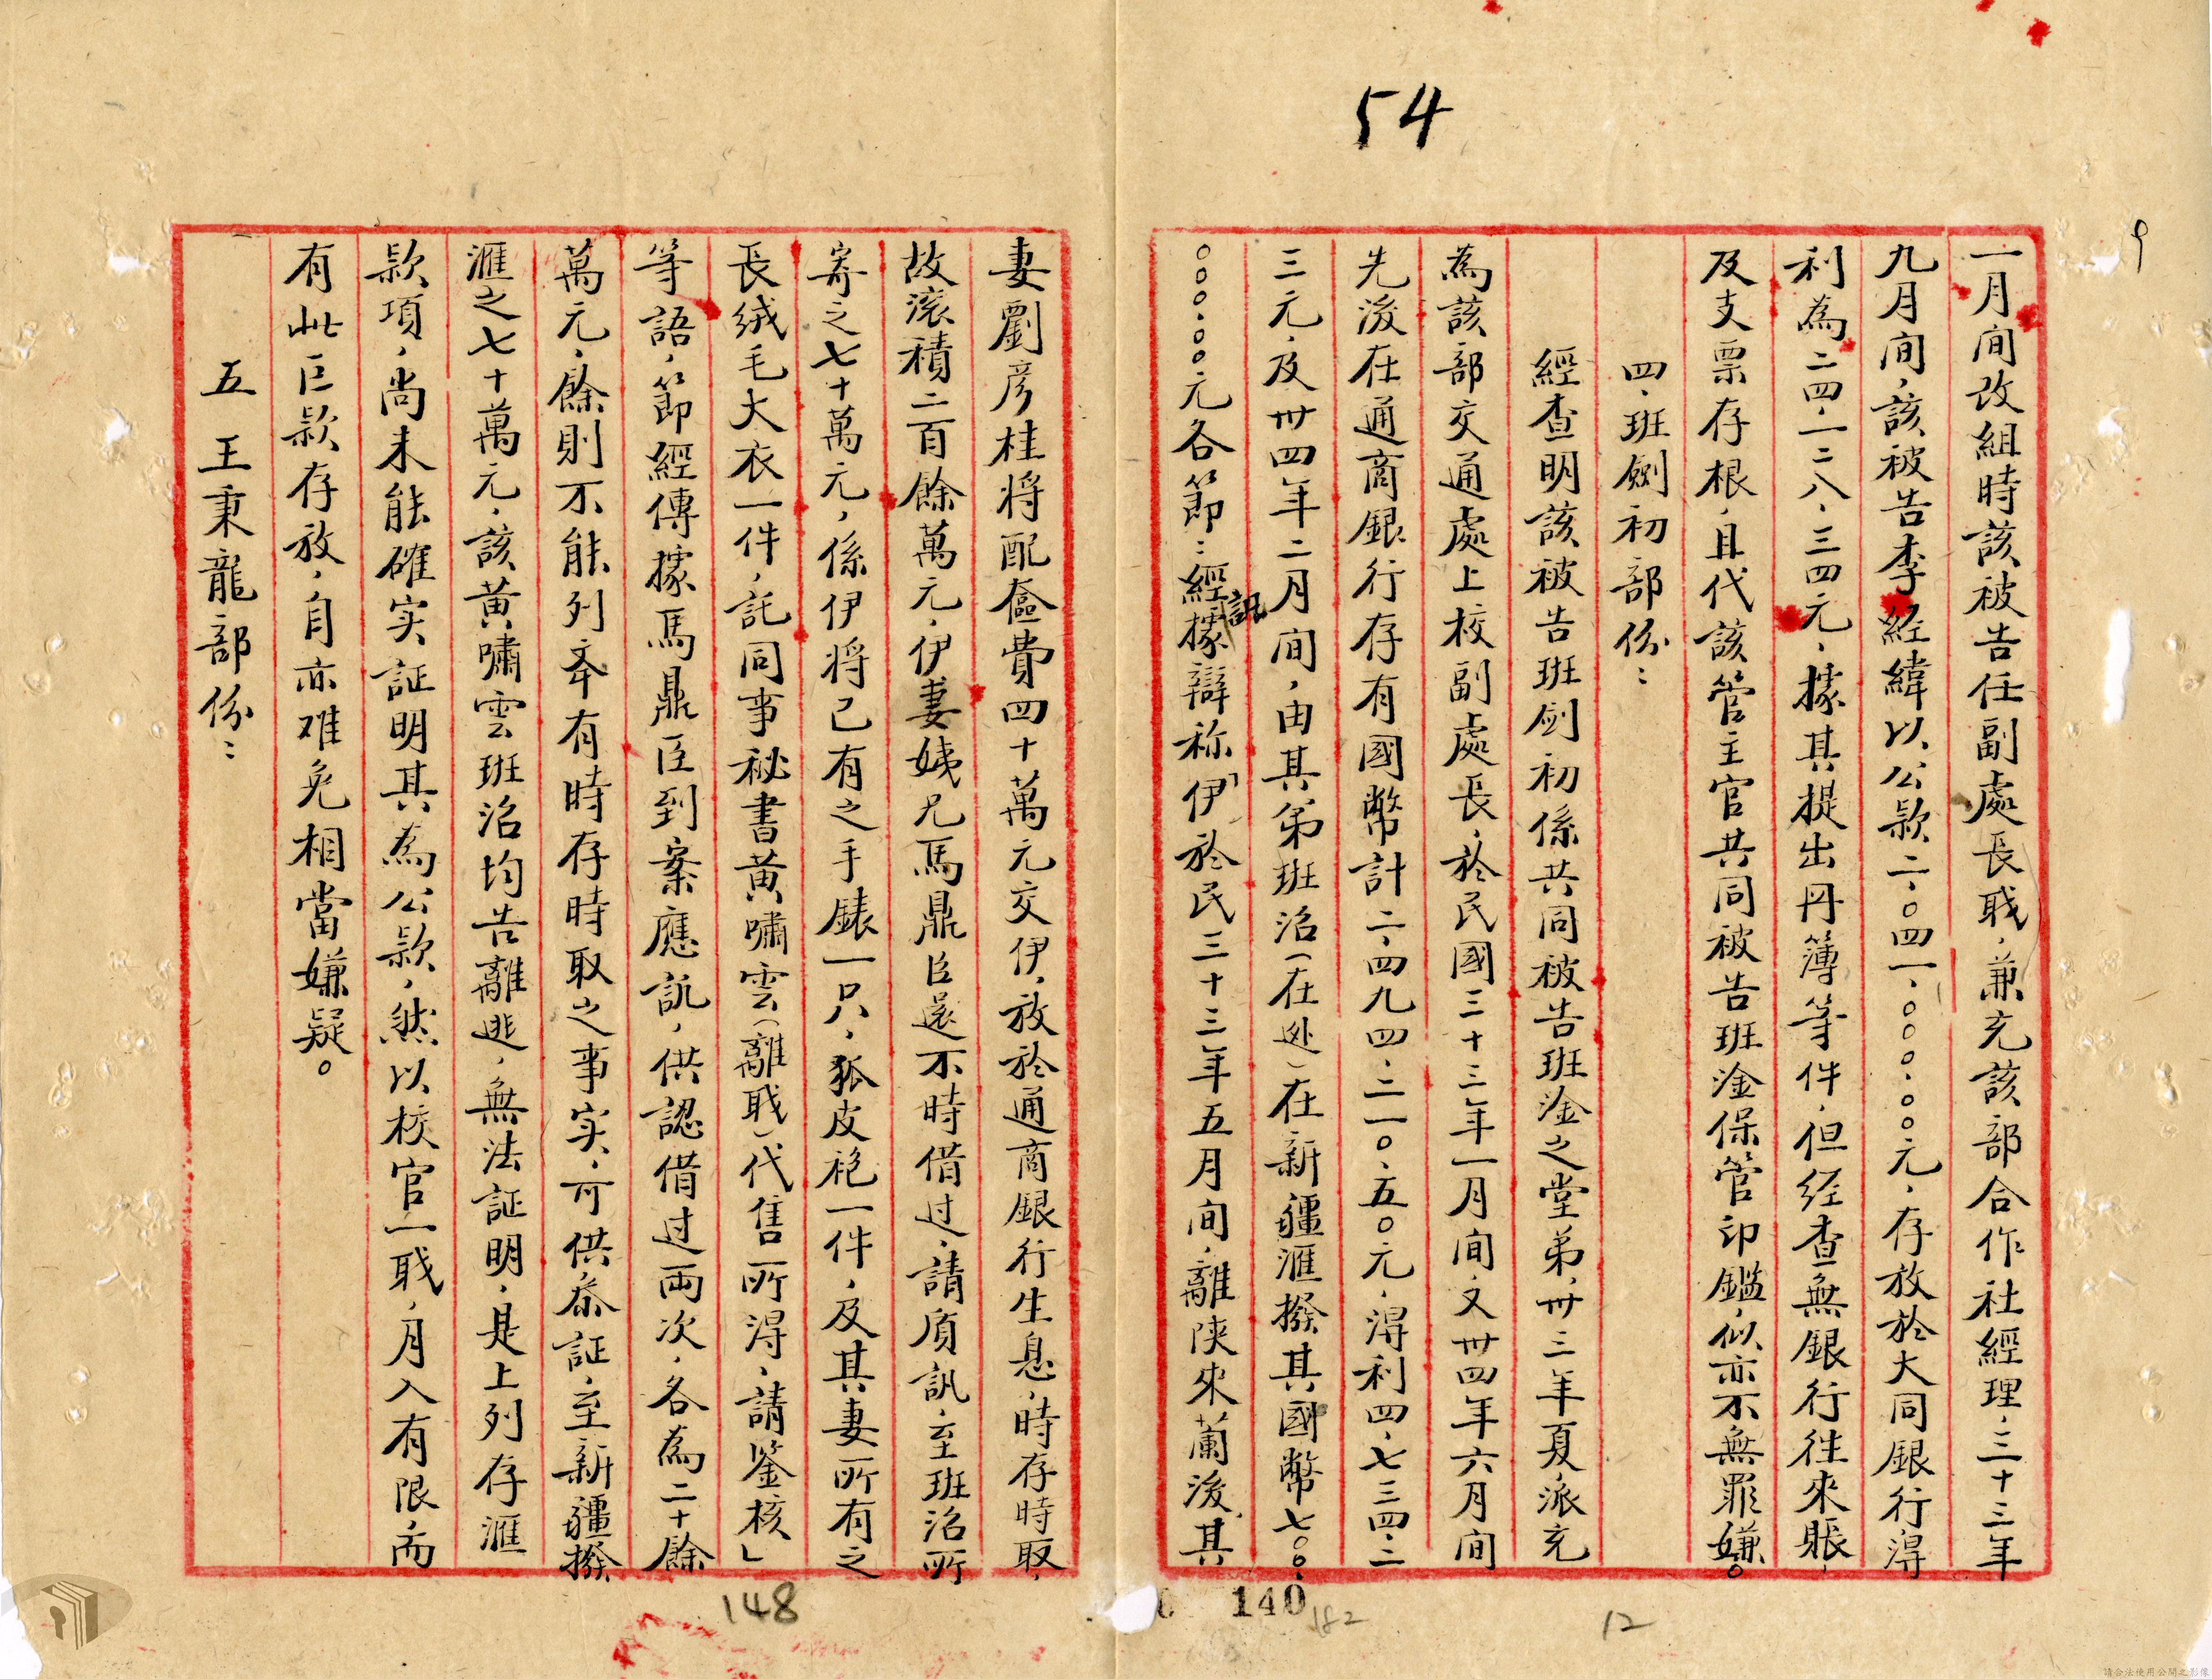 54
9
一月间改組時該被告任副處長職，兼充該部合作社經理，三十三年
九月间，該被告李經緯以公款二、〇四一、〇〇〇．〇〇元，存放於大同銀行得
利為二四、一二八、三四元，據其提出丹簿等件，但经查無銀行往來賬，
及支票存根，且代該管主官共同被告班淦保管印鑑，似亦不無罪嫌。
四、班劍初部份：
經查明該被告班剑初係共同被告班淦之堂弟，卅三年夏，派充
為該部交通處上校副處長，於民國三十三年一月间，又卅四年六月间
先後在通商銀行存有國幣計二、四九四、二一〇、五〇元，得利四、七三四、二
三元，及卅四年二月间，由其弟班治（在迯）在新疆滙撥其國幣七〇〇、
〇〇〇．〇〇元各節：經訊據辯称「伊於民三十三年五月间，離陝來蘭後，其
妻劉彦桂将配奩費四十萬元交伊，放於通商銀行生息，時存時取，
故滾積二百餘萬元，伊妻姨兄馬鼎臣還不時借过，請质訊，至班治所
寄之七十萬元，係伊将已有之手錶一只，狐皮袍一件，及其妻所有之
長绒毛大衣一件，託同事秘書黃嘯雲（離職）代售所得，請鉴核」
等語，節經傳據馬鼎臣到案應訊，供認借过兩次，各為二十餘
萬元，餘則不能列举有時存時取之事实，可供叅証，至新疆撥
滙之七十萬元，該黃嘯雲班治均告離逃，無法証明，是上列存滙
款項，尚未能確实証明其為公款，然以校官一職，月入有限，而
有此巨款存放，自亦难免相當嫌疑。
五　王秉龍部份：
148
140
182
12
請合法使用公開之影像